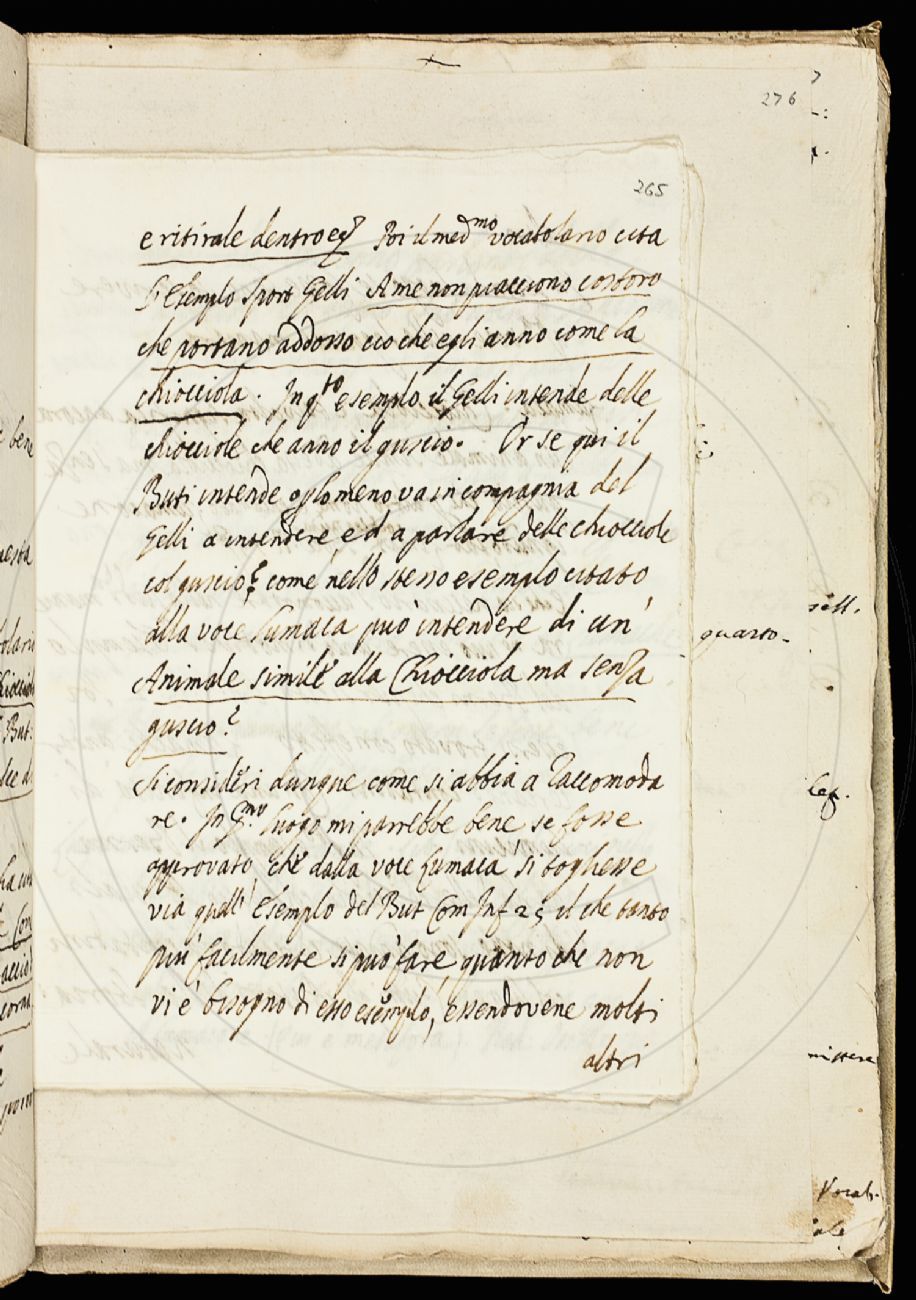 276
265
e ritirale dentro eg.
Poi il med.mo vocabolario cita
l'Esemplo Sport Gelli A me non piacciono costoro
che portano addosso ciò che egli anno come la
chiocciola. In q.to esemplo il Gelli intende delle
chiocciole che anno il guscio. Or se qui il
Buti intende o glomeno va in compagnia del
Gelli a intendere, ed a parlare delle chiocciole
col guscio; come nello stesso esemplo citato
alla voce Lumaca può intendere di un'
Animale simile alla Chiocciola ma senza
guscio?
Si consideri dunque come si abbia a raccomoda
re. In p.mo luogo mi parrebbe bene se fosse
approvato, che dalla voce Lumaca si togliesse
via quell' Esemplo del But Com Inf 25 il che tanto
più facilmente si può fare quanto che non
vi è bisogno di esso esemplo, essendovene molti
altri
bene
quarto.
mettere
Vocab.